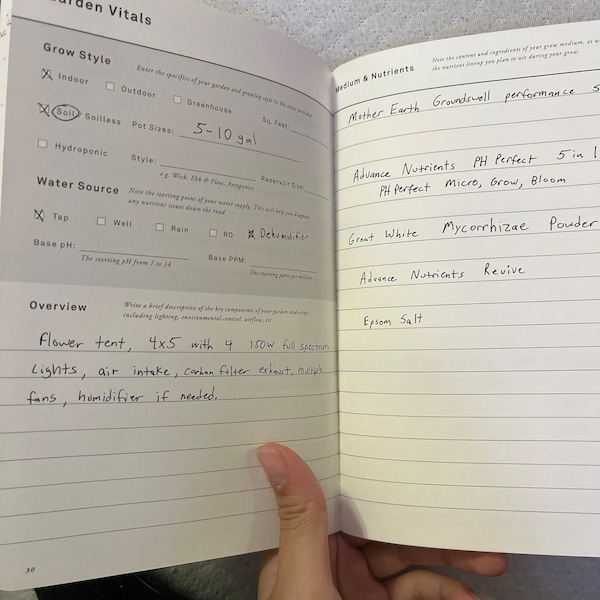 Garden Vitals
Grow Style
Enter the specifics of your garden and growing style in the areas provided.
Indoor Outdoor Greenhouse Sq. Feet:
Soil / Soilless Pot Sizes: 5-10 gal
Hydroponic Style: Reservoir Size:
e.g. Wick, Ebb & Flow, Aeroponics
Water Source
Note the starting point of your water supply. This will help you diagnose
any nutrient issues down the road.
Tap Well Rain RO Dehumidifier
Base pH: Base PPM:
The starting pH from 1 to 14
The starting parts per million
Overview
Write a brief description of the key components of your garden and setup
including lighting, environmental control, airflow, etc.
Flower tent, 4x5 with 4 150w full spectrum
Lights, air intake, carbon filter exhaust, multiple
fans, humidifier if needed.
30
Medium & Nutrients
Note the content and ingredients of your grow medium, as w
the nutrient lineup you plan to use during your grow.
Mother Earth Groundswell performance s
Advance Nutrients PH Perfect 5 in 1
PH Perfect Micro, Grow, Bloom
Great White Mycorrhizae Powder
Advance Nutrients Revive
Epsom Salt